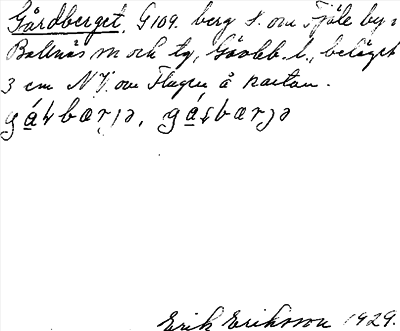 Gårdberget, G109. berg S. om Fjäle by i
Bollnäs sn och tg, Gävleb. l., beläget
3 cm NV. om Flugen å kartan.
gá̱ɽbærjə, gá̱ʂbærjə
Erik Eriksson 1929.